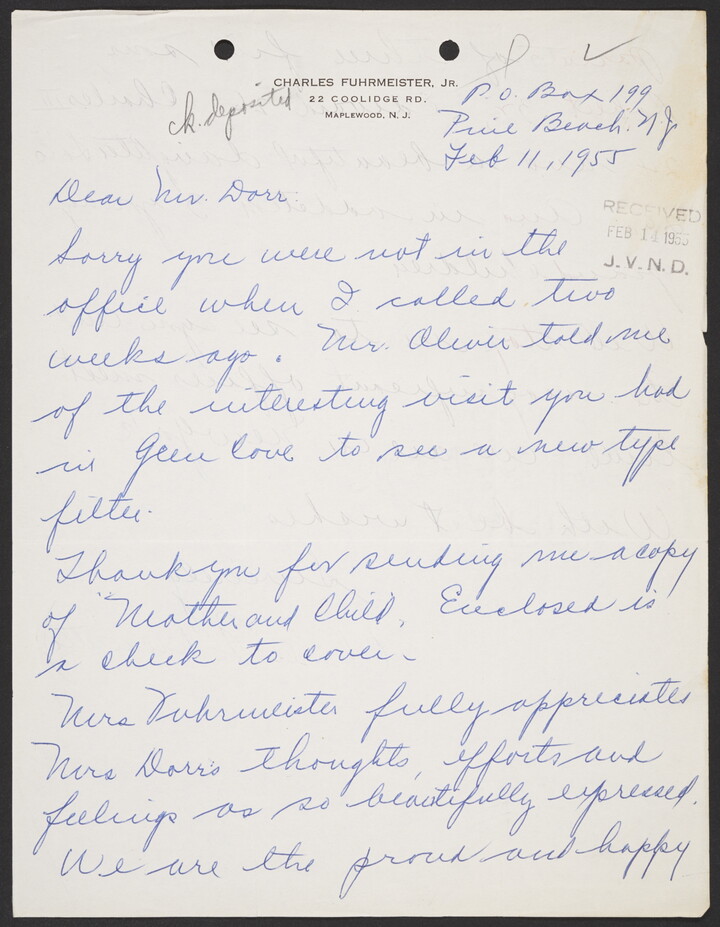 CHARLES FUHRMEISTER, JR.
22 COOLIDGE RD.
MAPLEWOOD, N. J.
ck. deposited
P. O. Box 199
Pine Beach. N J
Feb 11, 1955
Dear Mr. Dorr.
RECEIVED
FEB 14 1955
J. V. N. D.
Sorry you were not in the
office when I called two
weeks ago. Mr. Oliver told me
of the interesting visit you had
in Geen Cove to see a new type
filter.
Thank you for sending me a copy
of "Mother and Child. Enclosed is
a check to cover.
Mrs Fuhrmeister fully appreciates
Mrs Dorrs thoughts, efforts and
feelings as so beautifully expressed.
We are the proud and happy